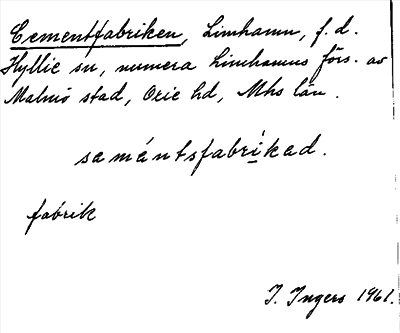 Cementfabriken, Limhamn, f.d.
Hyllie sn, numera Limhamns förs. av
Malmö stad, Oxie hd, Mhs län.
semántsfabrikad.
fabrik
I. Ingers 1961.